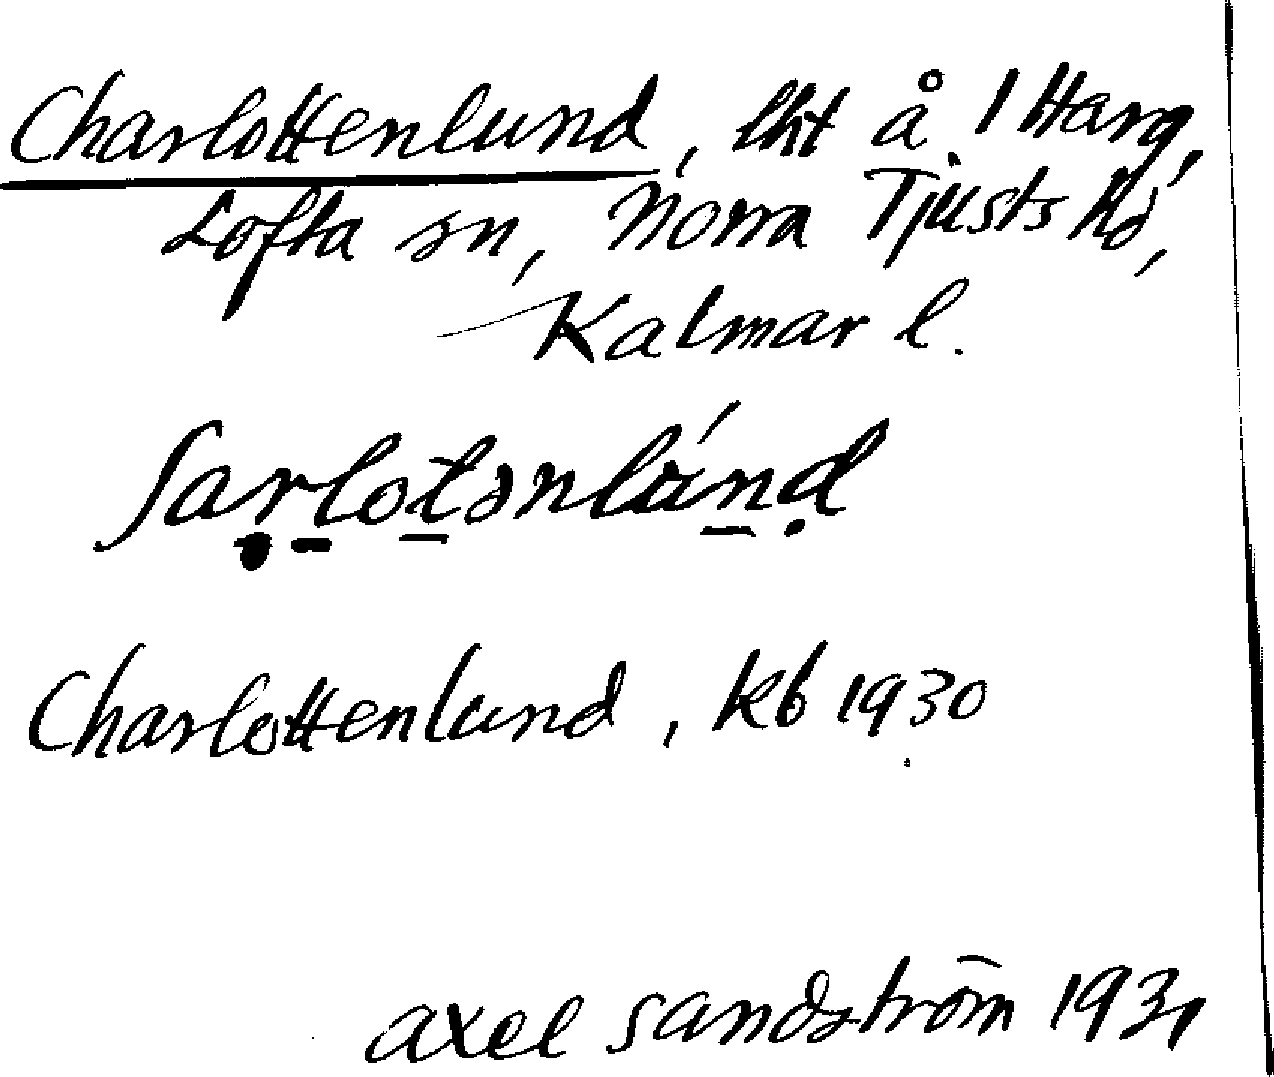 Charlottenlund, lht å 1 Harg,
Lofta sn, Norra Tjusts hd,
Kalmar l.
ʃarlotənlúnd
Charlottenlund, Kb 1930
Axel Sandström 1931